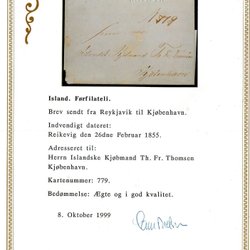 Island. Førfilateli.
Brev sendt fra Reykjavik til Kjøbenhavn.
Indvendigt dateret:
Reikevig den 26dne Pebruar 1855.
Adresseret til:
Herrn Islandske Kjøbmand Th. Fr. Thomsen
Kjøbenhavn.
Kartenummer: 779.
Bedømmelse: Ægte og i god kvalitet.
8. Oktober 1999